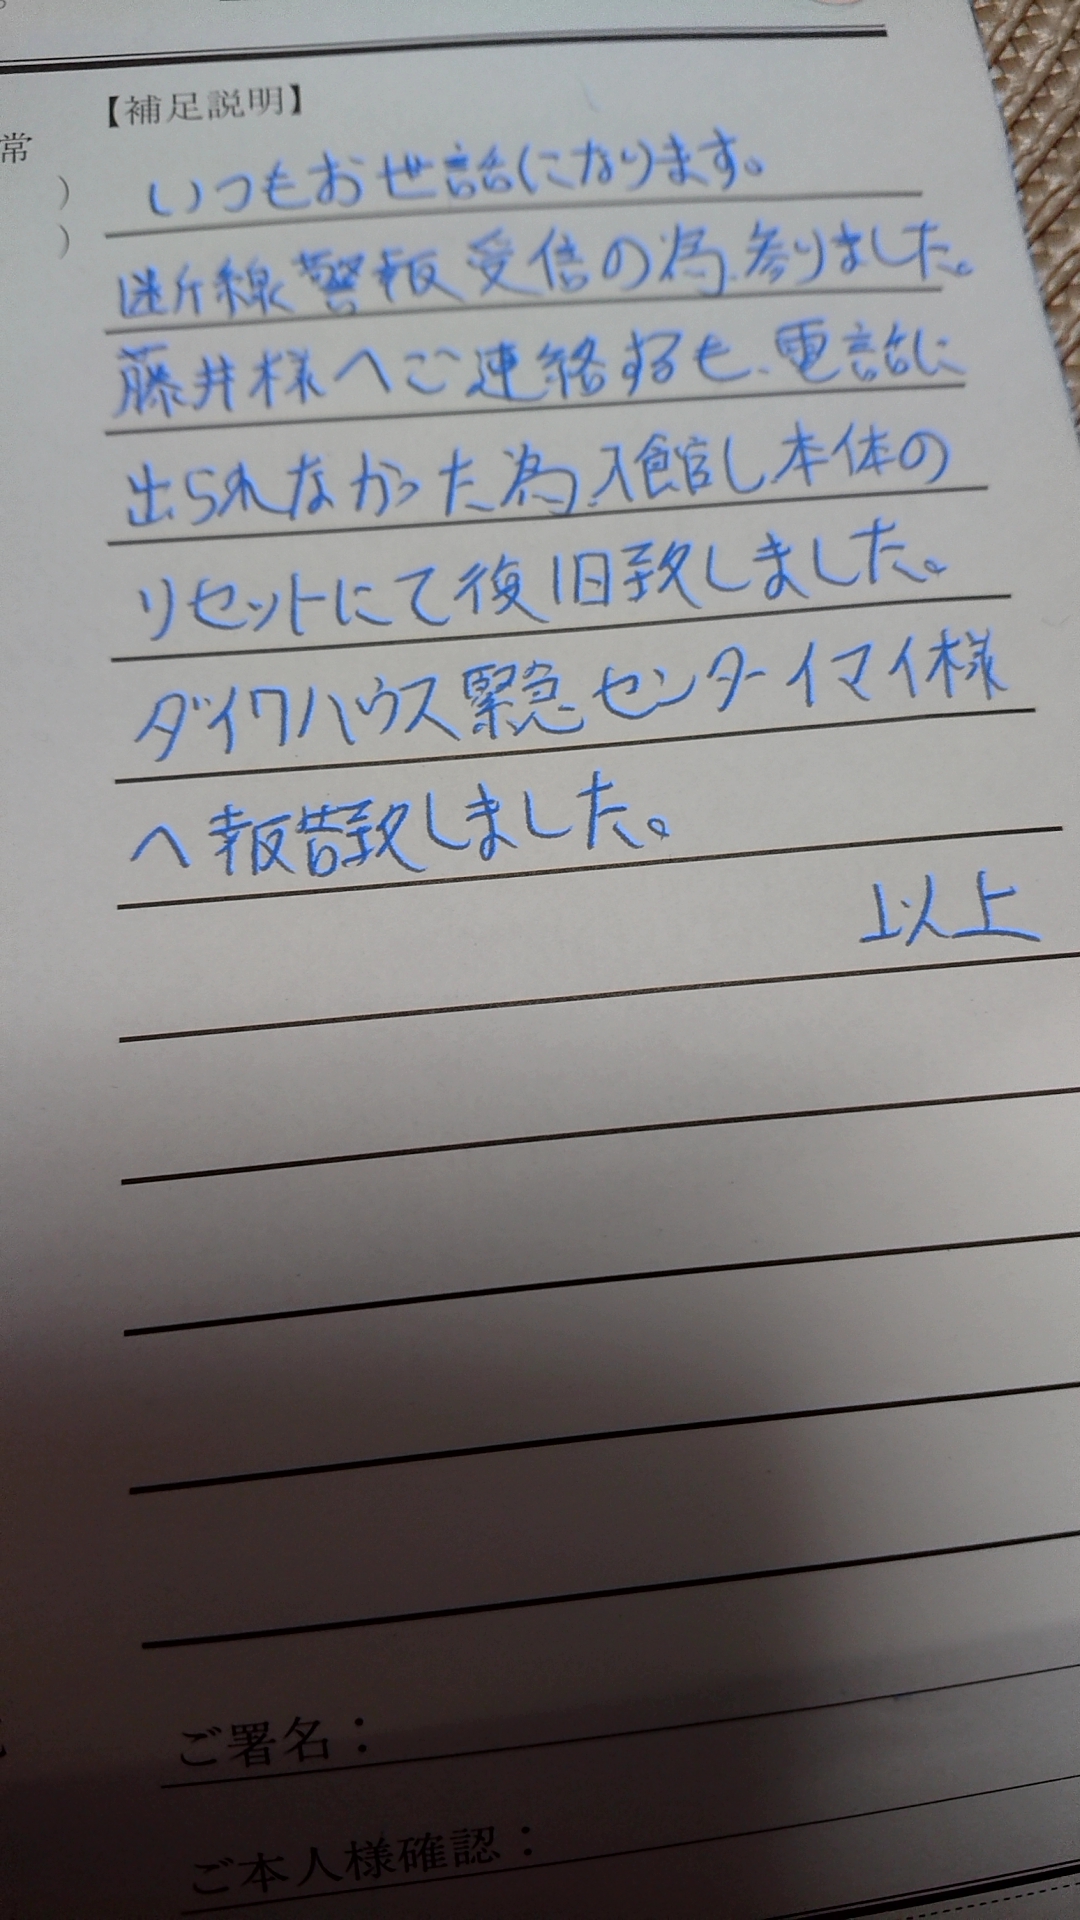 【補足説明】
常
)
)
いつもお世話になります。
断線警報受信の為、参りました。
藤井様へご連絡するも、電話に
出られなかった為、入館し、本体の
リセットにて復旧致しました。
ダイワハウス緊急センターイマイ様
へ報告致しました。
以上
ご署名：
ご本人様確認：